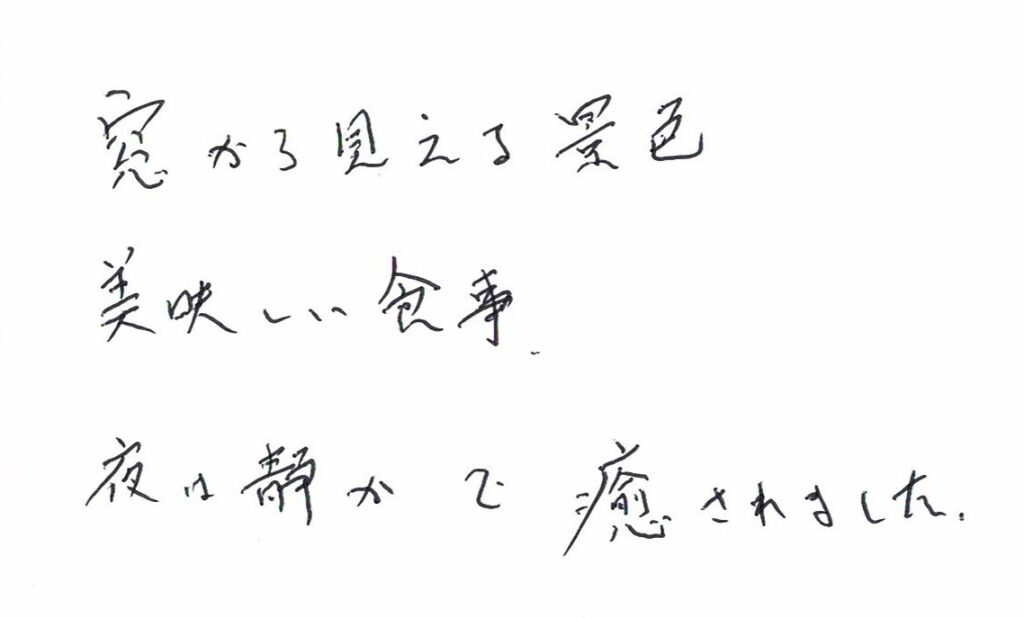 窓から見える景色
美味しい食事.
夜は静かで癒されました.